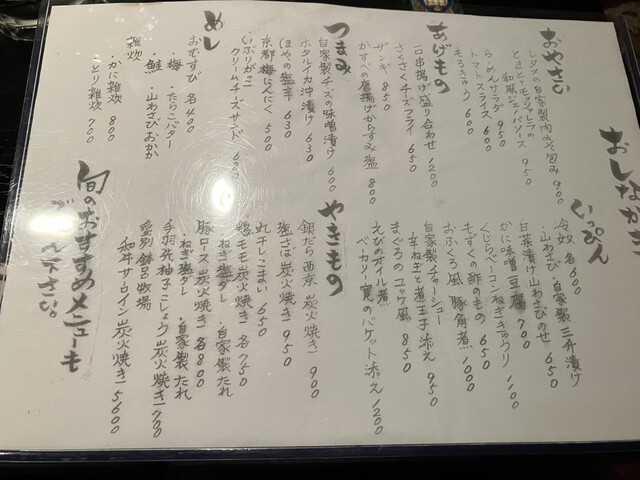 おしながき
おやさい
レタスの自家製肉みそ包み 900
とまととモッツァレラの
和風ジェノバソース 950
らーめんサラダ 950
トマトスライス 600
もろきゅう 600
あげもの
一口串揚げ盛り合わせ 1200
さくさくチーズフライ 650
ザンギ 850
かすべの唐揚げからすみ塩 800
つまみ
自家製チーズの味噌漬け 600
ホタルイカ沖漬け 630
ほやの塩辛 630
京都梅にんにく 500
いぶりがっこ
クリームチーズサンド 630
めし
おむすび 各400
・梅 ・たらこバター
・鮭 ・山わさびおかか
雑炊
・かに雑炊 800
・とり雑炊 700
いっぴん
冷奴 各600
・山わさび ・自家製三升漬け
白菜漬け山わさびのせ 650
かに味噌豆腐 700
くじらベーコンねぎきゅうり 1100
もずくの酢のもの 650
おふくろ風豚角煮 1000
自家製チャーシュー
辛ねぎと煮玉子添え 950
まぐろのユッケ風 850
えびのオイル煮
ベーカリー寛のバゲット添え 1200
やきもの
銀だら西京炭火焼き 900
塩さば炭火焼き 950
丸干しこまい 650
鶏モモ炭火焼き 各750
・ねぎ塩ダレ ・自家製たれ
豚ロース炭火焼き 各800
・ねぎ塩ダレ ・自家製たれ
手羽先柚子こしょう炭火焼き 700
愛別 鉢呂牧場
和牛サーロイン炭火焼き 5600
旬のおすすめメニューも
ご覧下さい。